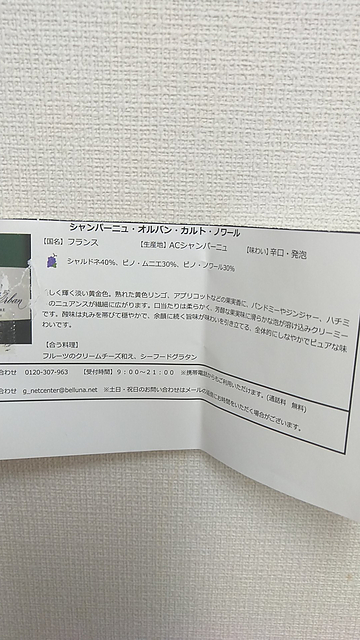 シャンパーニュ・オルバン・カルト・ノワール
【国名】フランス 【生産地】ACシャンパーニュ 【味わい】辛口・発泡
シャルドネ40%、ピノ・ムニエ30%、ピノ・ノワール30%
しく輝く淡い黄金色。熟れた黄色リンゴ、アプリコットなどの果実香に、パンドミーやジンジャー、ハチミ
のニュアンスが繊細に広がります。口当たりは柔らかく、芳醇な果実味に滑らかな泡が溶け込みクリーミー
です。酸味は丸みを帯びて穏やかで、余韻に続く旨味が味わいを引き立てる、全体的にしなやかでピュアな味
わいです。
【合う料理】
フルーツのクリームチーズ和え、シーフードグラタン
合わせ 0120-307-963 【受付時間】9:00～21:00 ※携帯電話からもご利用いただけます。(通話料 無料)
合わせ g_netcenter@belluna.net ※土日・祝日のお問い合わせはメールの返信にお時間をいただく場合がございます。